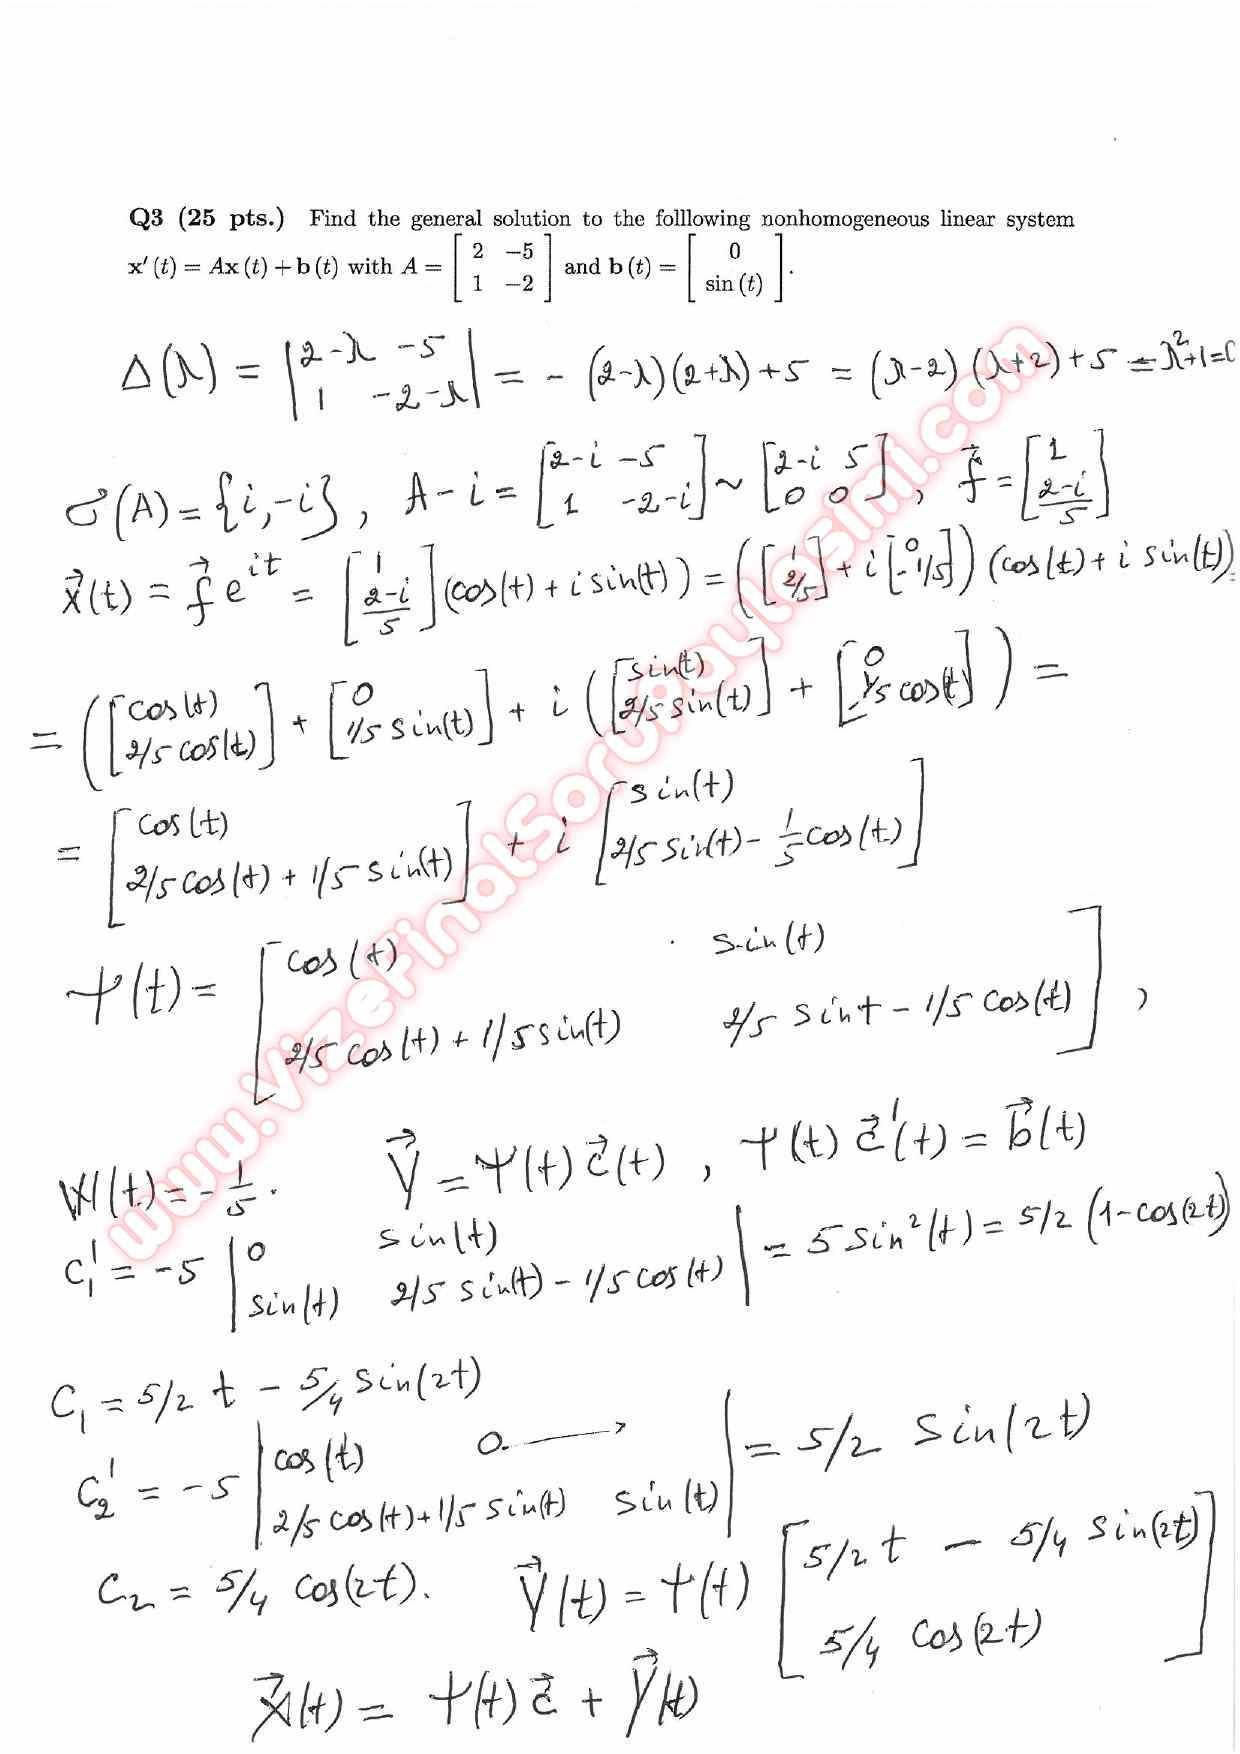 Q3 (25 pts.) Find the general solution to the folllowing nonhomogeneous linear system
x′(t) = Ax(t) + b(t) with A = [2 −5; 1 −2] and b(t) = [0; sin(t)].
Δ(λ) = |2-λ -5; 1 -2-λ| = -(2-λ)(2+λ)+5 = (λ-2)(λ+2)+5 = λ²+1=0
σ(A) = {i,-i}, A-i = [2-i -5; 1 -2-i] ~ [2-i 5; 0 0], f⃗ = [1; (2-i)/5]
x⃗(t) = f⃗ e^{it} = [1; (2-i)/5] (cos(t) + i sin(t)) = ([1; 2/5] + i [0; -1/5]) (cos(t) + i sin(t))
= ([cos(t); 2/5 cos(t)] + [0; 1/5 sin(t)] + i ([sin(t); 2/5 sin(t)] + [0; -1/5 cos(t)]) =
= [cos(t); 2/5 cos(t) + 1/5 sin(t)] + i [sin(t); 2/5 sin(t) - 1/5 cos(t)]
Ψ(t) = [cos(t) sin(t); 2/5 cos(t) + 1/5 sin(t) 2/5 sin t - 1/5 cos(t)],
W(t) = -1/5. y⃗ = Ψ(t) c⃗(t), Ψ(t) c⃗'(t) = b⃗(t)
c₁' = -5 |0 sin(t); sin(t) 2/5 sin(t) - 1/5 cos(t)| = 5 sin²(t) = 5/2 (1-cos(2t))
c₁ = 5/2 t - 5/4 sin(2t)
c₂' = -5 |cos(t) 0 →; 2/5 cos(t)+1/5 sin(t) sin(t)| = 5/2 sin(2t)
c₂ = 5/4 cos(2t). y⃗(t) = Ψ(t) [5/2 t - 5/4 sin(2t); 5/4 cos(2t)]
x⃗(t) = Ψ(t) c⃗ + y⃗(t)
www.VizeFinalSoruPaylasimi.com